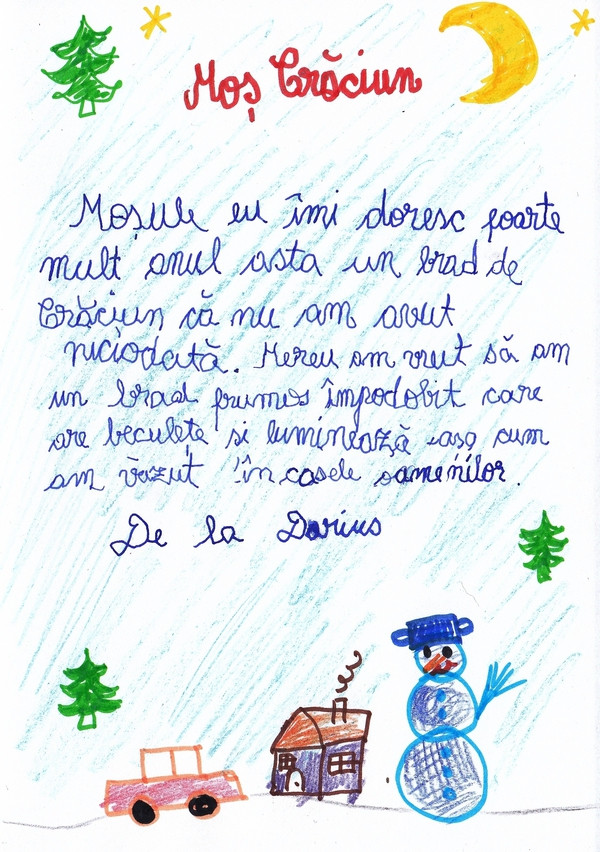 Moș Crăciun
Moșule eu îmi doresc foarte
mult anul asta un brad de
Crăciun că nu am avut
niciodată. Mereu am vrut să am
un brad frumos împodobit care
are beculețe și luminează așa cum
am văzut în casele oamenilor.
De la Darius